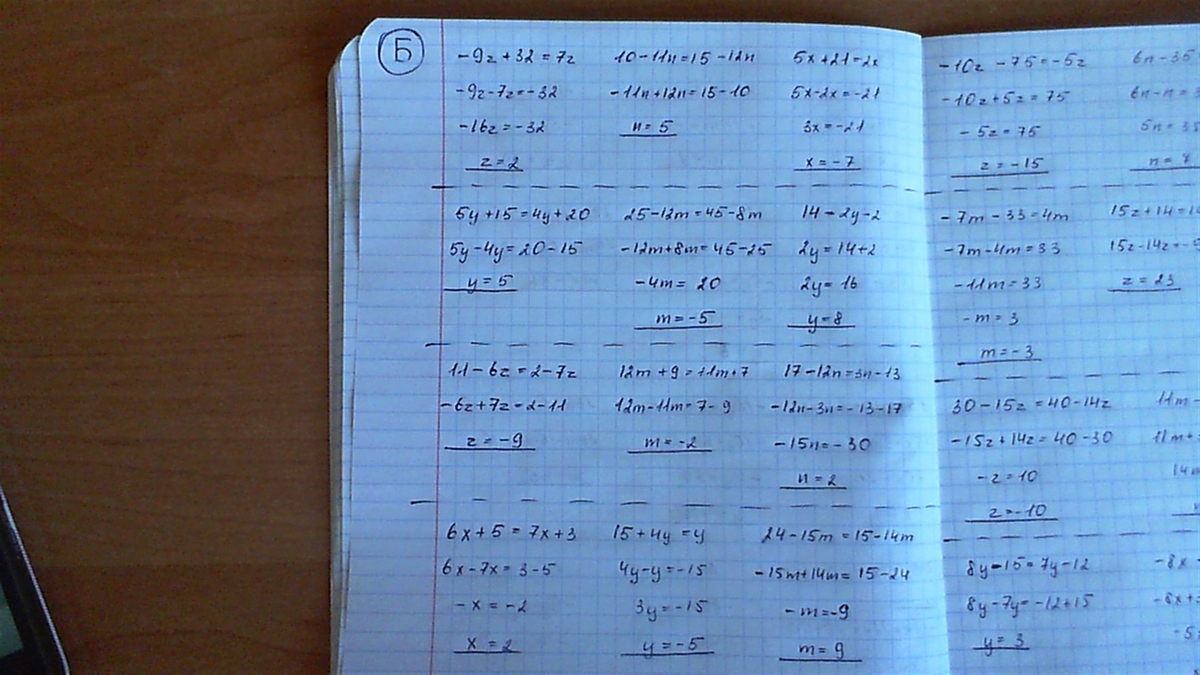 Б
-9z+32=7z 10-11n=15-12n 5x+21=2x
-9z-7z=-32 -11n+12n=15-10 5x-2x=-21
-16z=-32 n=5 3x=-21
z=2 x=-7
5y+15=4y+20 25-12m=45-8m 14=2y-2
5y-4y=20-15 -12m+8m=45-25 2y=14+2
y=5 -4m=20 2y=16
m=-5 y=8
11-6z=2-7z 12m+9=11m+7 17-12n=3n-13
-6z+7z=2-11 12m-11m=7-9 -12n-3n=-13-17
z=-9 m=-2 -15n=-30
n=2
6x+5=7x+3 15+4y=y 24-15m=15-14m
6x-7x=3-5 4y-y=-15 -15m+14m=15-24
-x=-2 3y=-15 -m=-9
x=2 y=-5 m=9
-10z-75=-5z 6n-35
-10z+5z=75 6n-n=3
-5z=75 5n=35
z=-15 n=7
-7m-33=4m 15z+14=1
-7m-4m=33 15z-14z=
-11m=33 z=23
-m=3
m=-3
30-15z=40-14z 11m-
-15z+14z=40-30 11m+
-z=10 14m
z=-10
8y-15=7y-12 -8x
8y-7y=-12+15 -8x+
y=3 -5